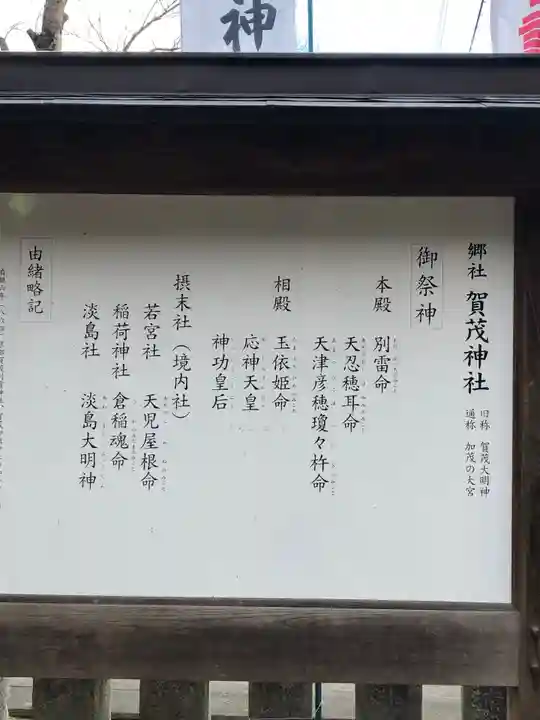 神
郷社 賀茂神社
旧称 賀茂大明神
通称 加茂の大宮
御祭神
本殿 別雷命
天忍穂耳命
天津彦穂瓊々杵命
相殿 玉依姫命
応神天皇
神功皇后
摂末社（境内社）
若宮社 天児屋根命
稲荷神社 倉稲魂命
淡島社 淡島大明神
由緒略記